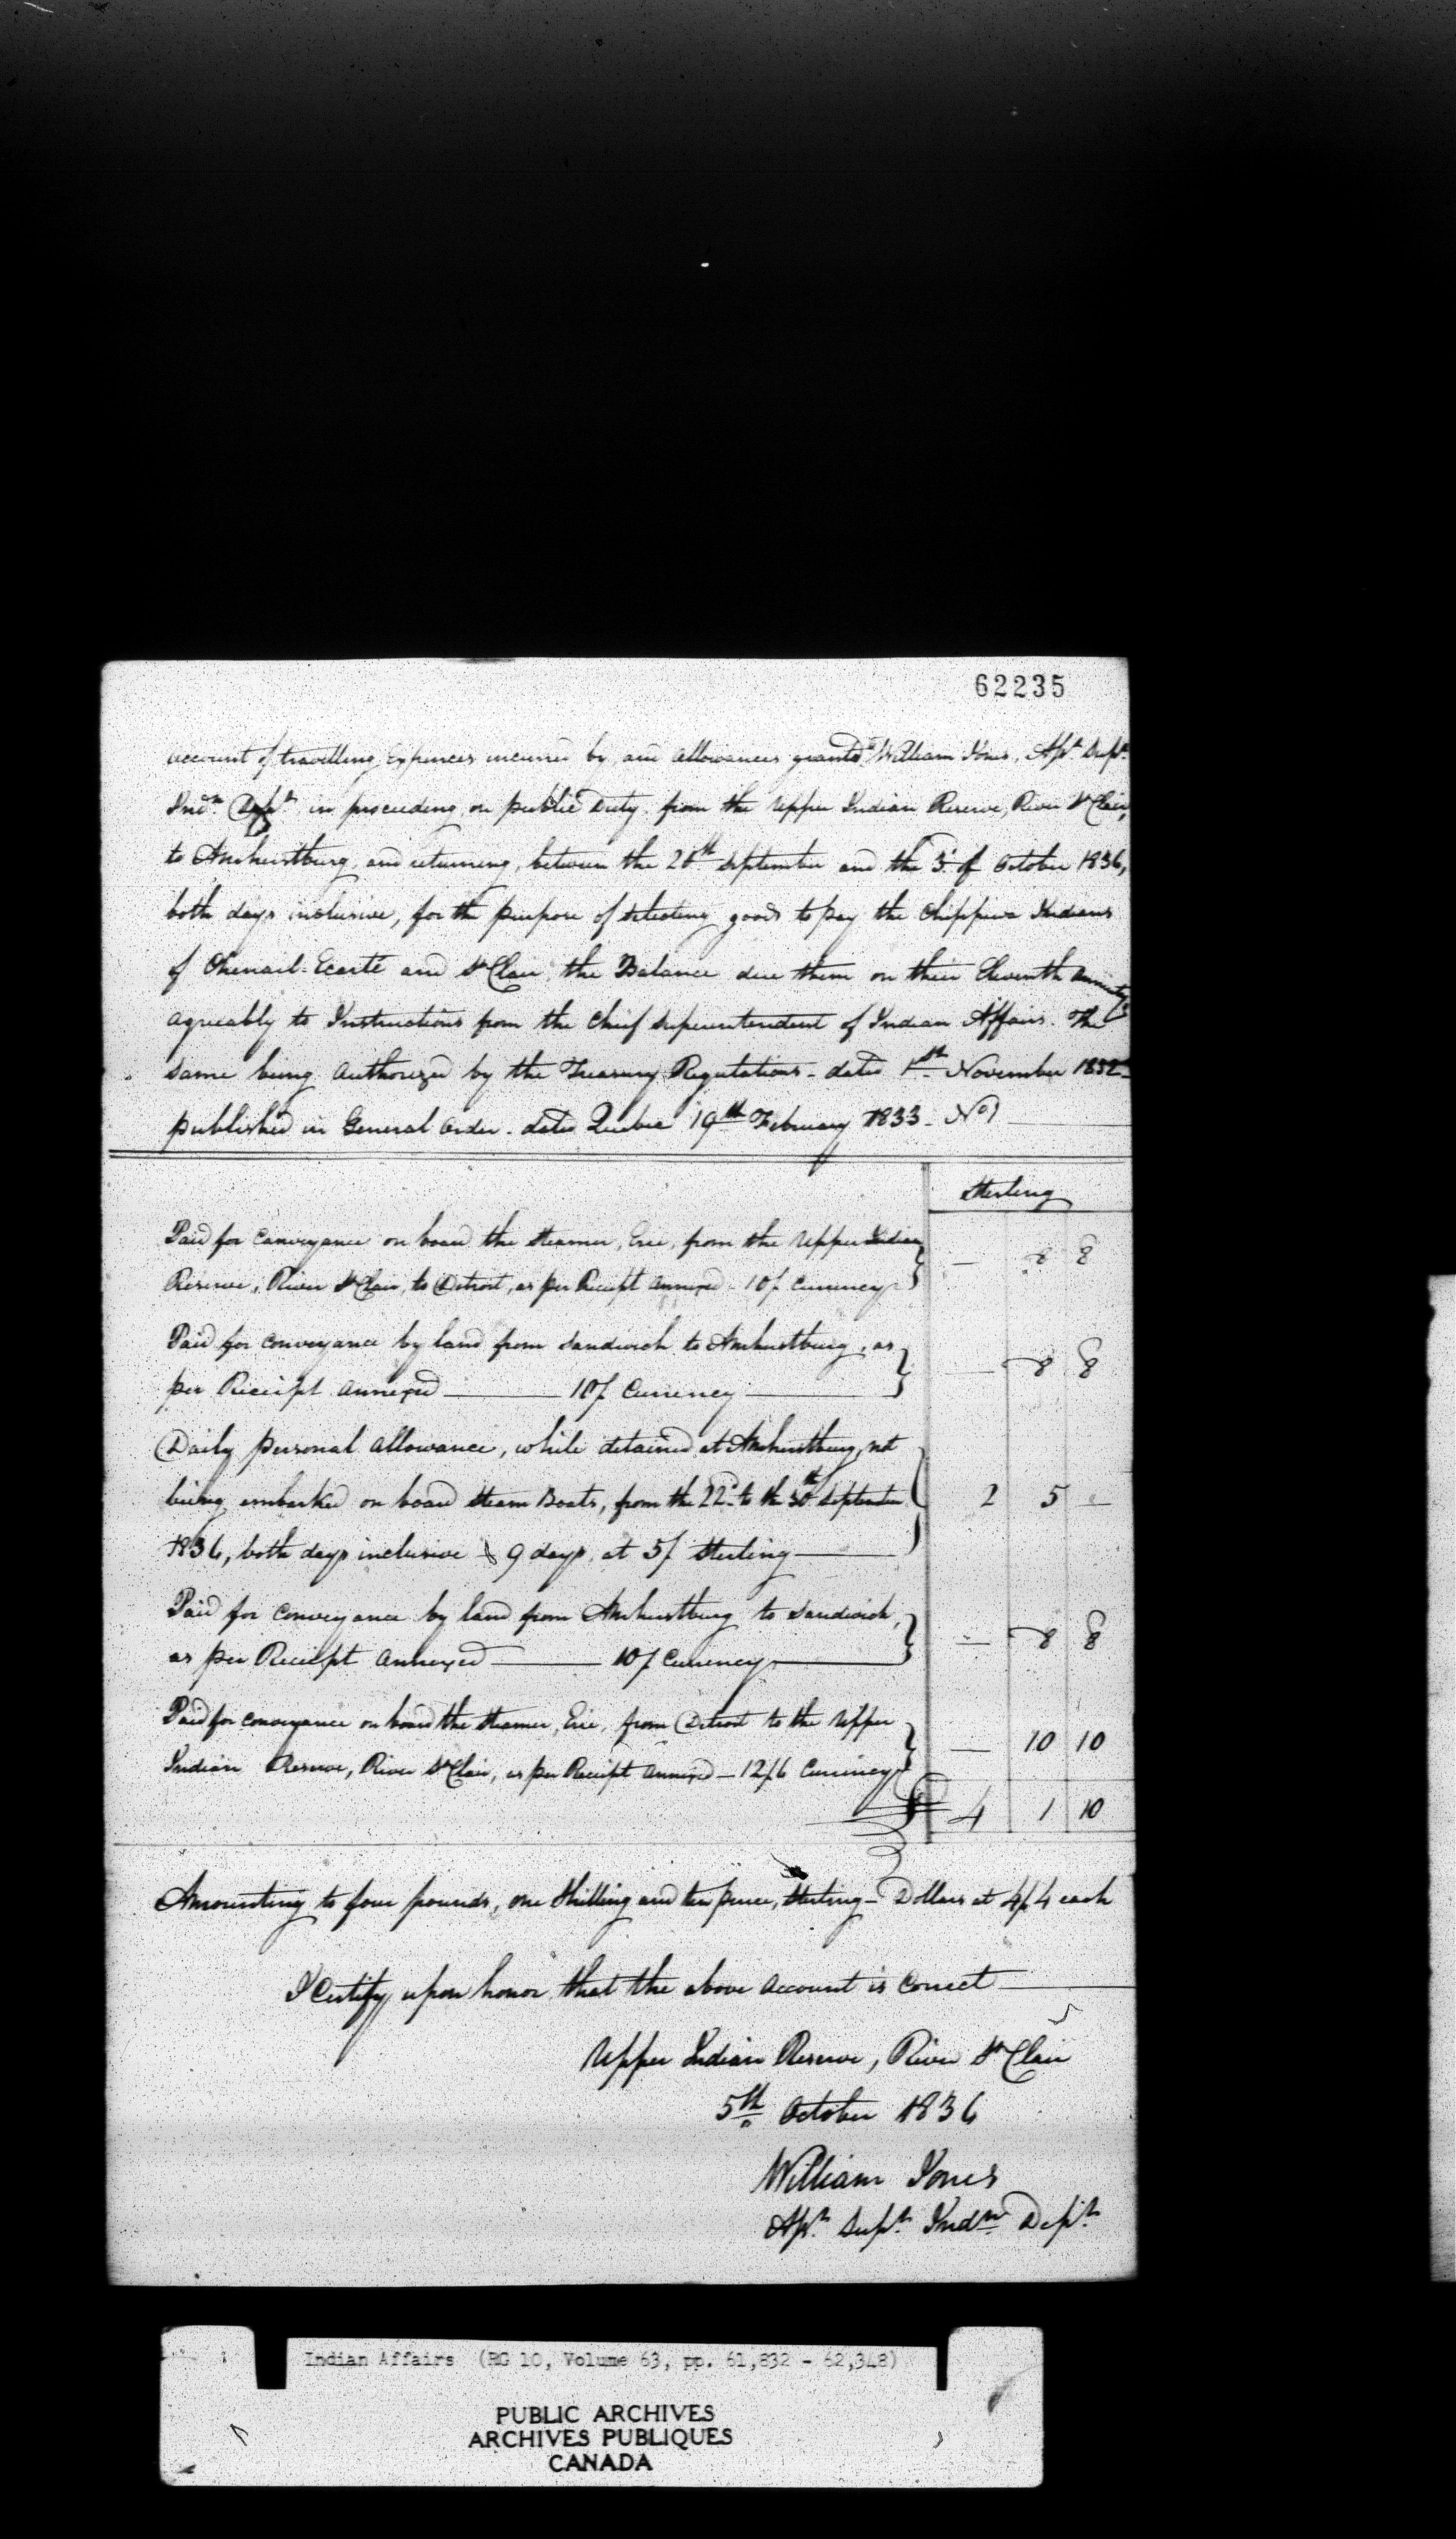 62235
account of travelling Expences incurred by and allowances granted William Jones, Asst. Supt.
Indn. Dept. in proceeding on public Duty from the Upper Indian Reserve, River St Clair,
to Amherstburg and returning, between the 20th September and the 3d. of October 1836,
both days inclusive, for the purpose of selecting goods to pay the Chippewa Indians
of Chenail-Ecarté and St Clair the Balance due them on their Eleventh Annuity
agreeably to Instructions from the Chief Superintendent of Indian Affairs. The
same being authorized by the Treasury Regulations - dated 1st November 1832
published in General Order - dated Quebec 19th February 1833 - No 1
Sterling
Paid for Conveyance on board the Steamer, Erie, from the Upper Indian
Reserve, River St Clair, to Detroit, as per Receipt annexed - 10/ Currency — 8 8
Paid for conveyance by land from Sandwich to Amherstburg, as
per Receipt annexed — 10/ Currency — — 8 8
Daily personal allowance, while detained at Amherstburg, not
being embarked on board Steam Boats, from the 22d. to the 30th September 2 5 —
1836, both days inclusive 9 days, at 5/ Sterling —
Paid for Conveyance by land from Amherstburg to Sandwich,
as per Receipt annexed — 10/ Currency — — 8 8
Paid for conveyance on board the Steamer, Erie, from Detroit to the Upper
Indian Reserve, River St Clair, as per Receipt annexed — 12/6 Currency — 10 10
£ 4 1 10
Amounting to four pounds, one Shilling and ten pence, Sterling - Dollars at 4/4 each
I Certify upon honor that the above Account is Correct —
Upper Indian Reserve, River St Clair
5th October 1836
William Jones
Asst. Supt. Indn. Dept.
Indian Affairs (RG 10, Volume 63, pp. 61,832 - 62,348)
PUBLIC ARCHIVES
ARCHIVES PUBLIQUES
CANADA